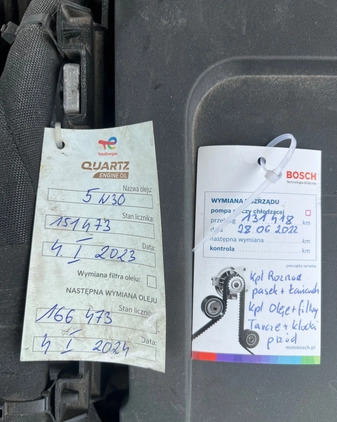 TotalEnergies
QUARTZ
ENGINE OIL
Nazwa oleju:
5W30
Stan licznika:
151 473
Data:
4. I 2023
Wymiana filtra oleju:
NASTĘPNA WYMIANA OLEJU
Stan licznika:
166 473
Data:
4 I 2024
BOSCH
WYMIANA ROZRZĄDU
pompa cieczy chłodzącej
przebieg 131 418 km
data 28.06 2022
następna wymiana km
kontrola km
kpl Rozrząd
pasek + łańcuch
kpl Oleje + filtry
Tarcze + klocki
przód